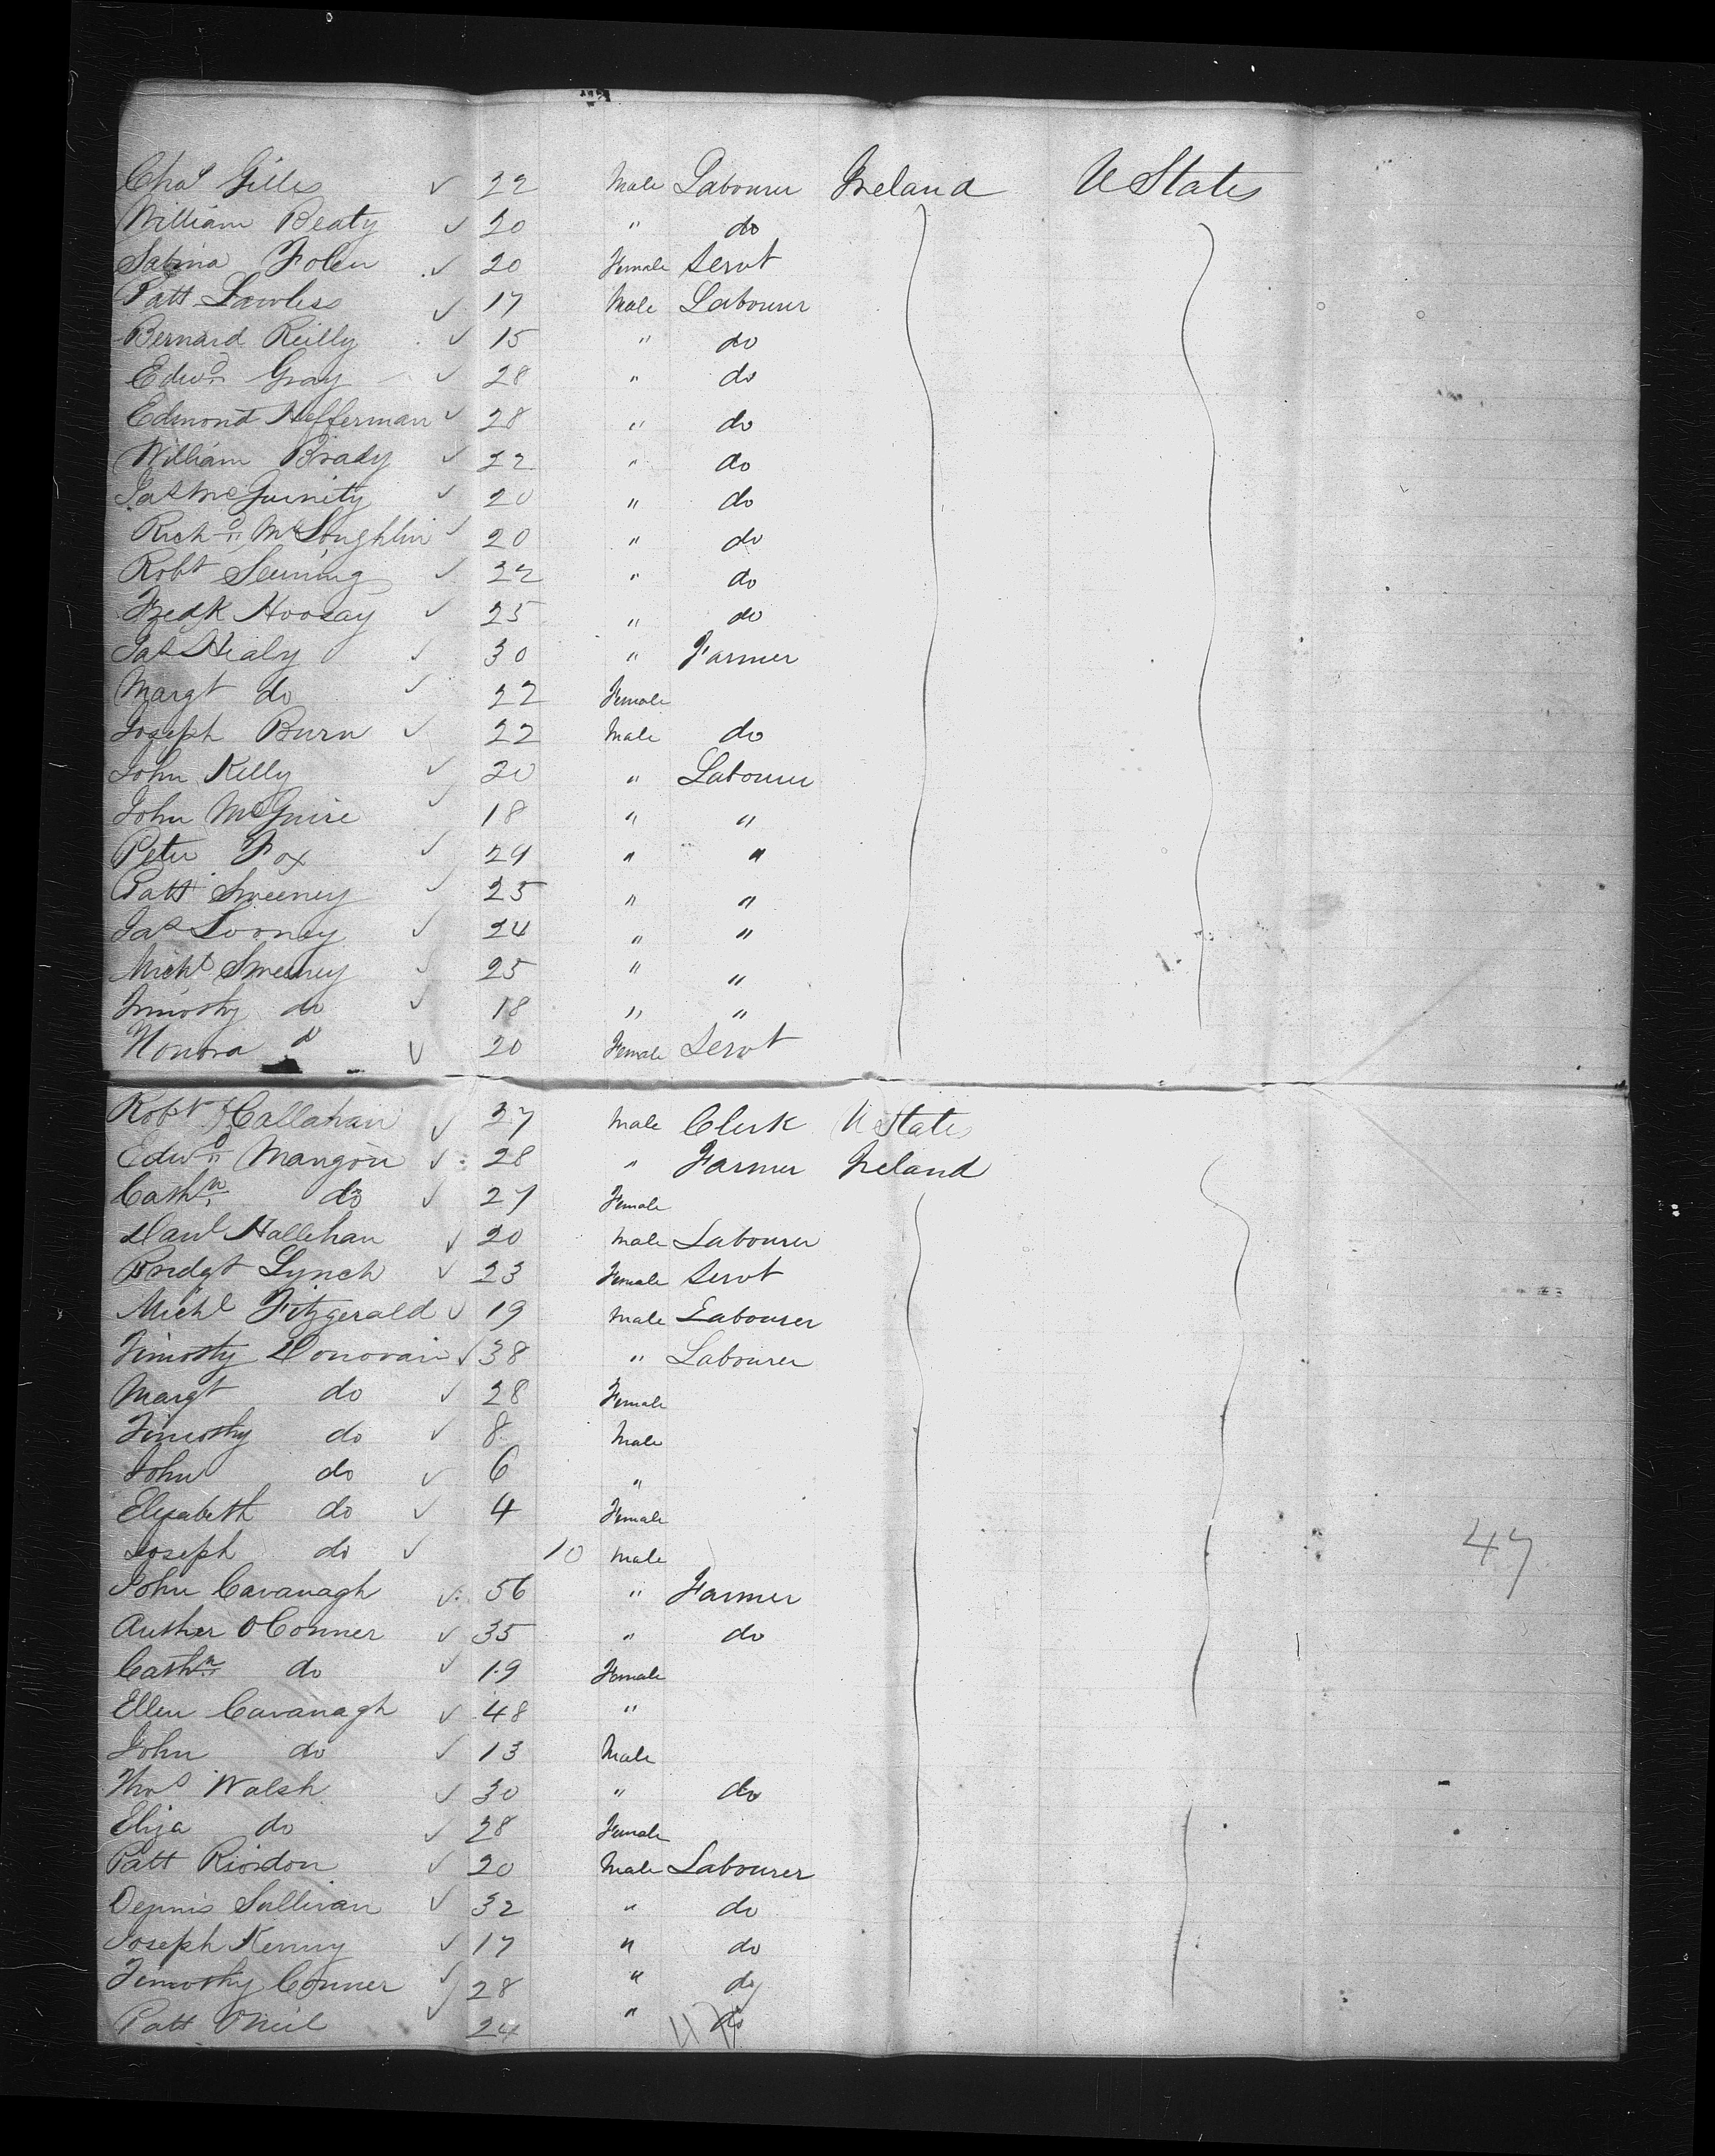 Chas Gilles ✓ 22 Male Labourer Ireland U States
William Beaty ✓ 20 " do
Sabina Folen ✓ 20 Female Servt
Patt Lawless ✓ 17 Male Labourer
Bernard Reilly ✓ 15 " do
Edwd Gray ✓ 28 " do
Edmond Hefferman ✓ 28 " do
William Brady ✓ 22 " do
Jas McGuinity ✓ 20 " do
Richd McLoughlin ✓ 20 " do
Robt ✓ 22 " do
Fredk ✓ 25 " do
Jas Healy ✓ 30 " Farmer
Margt do ✓ 22 Female
Joseph Burn ✓ 22 Male do
John Kelly ✓ 20 " Labourer
John McGuire ✓ 18 " "
Peter Fox ✓ 29 " "
Patt Sweeney ✓ 25 " "
Jas Looney ✓ 24 " "
Michl Sweeney ✓ 25 " "
Timothy do ✓ 18 " "
Honora do ✓ 20 Female Servt
Robt Callahan ✓ 27 Male Clerk U States
Edwd Mangon ✓ 28 " Farmer Ireland
Cathn do ✓ 27 Female
Danl Hallehan ✓ 20 Male Labourer
Bridgt Lynch ✓ 23 Female Servt
Michl Fitzgerald ✓ 19 Male Labourer
Timothy Donovan ✓ 38 " Labourer
Margt do ✓ 28 Female
Timothy do ✓ 8 Male
John do ✓ 6 "
Elizabeth do ✓ 4 Female
Joseph do ✓ 10 Male 47
John Cavanagh ✓ 56 " Farmer
Auther OConner ✓ 35 " do
Cathn do ✓ 19 Female
Ellen Cavanagh ✓ 48 "
John do ✓ 13 Male
Thos Walsh ✓ 30 " do
Eliza do ✓ 28 Female
Patt Riordon ✓ 20 Male Labourer
Dennis Sullivan ✓ 32 " do
Joseph Kenny ✓ 17 " do
Timothy Conner ✓ 28 " do
Patt ONeil ✓ 24 " do
47